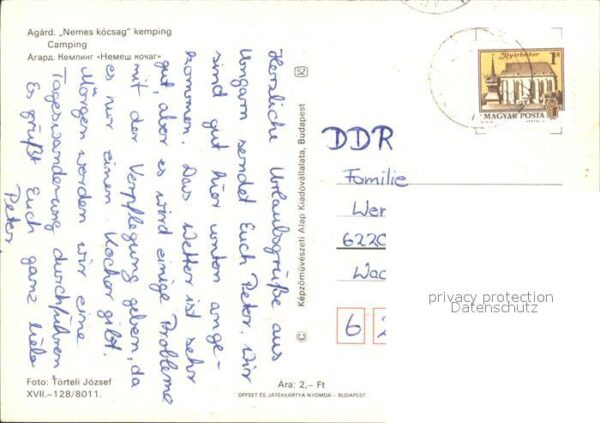 Agárd. „Nemes kócsag" kemping
Camping
Агард. Кемпинг «Немеш кочаг»
Herzliche Urlaubsgrüße aus
Ungarn sendet Euch Peter. Wir
sind gut hier unten ange-
kommen. Das Wetter ist sehr
gut, aber es wird einige Probleme
mit der Verpflegung geben, da
es nur einen Kocher gibt.
Morgen werden wir eine
Tageswanderung durchführen.
Es grüßt Euch ganz liebe
Peter
Foto: Törteli József
XVII.–128/8011.
SZ
© Képzőművészeti Alap Kiadóvállalata, Budapest
Ára: 2,– Ft
OFFSET ÉS JÁTÉKKÁRTYA NYOMDA – BUDAPEST
Nyírbátor
1 Ft
MAGYAR POSTA
DDR
Familie
Wer
6220
Wac
6 2
privacy protection
Datenschutz